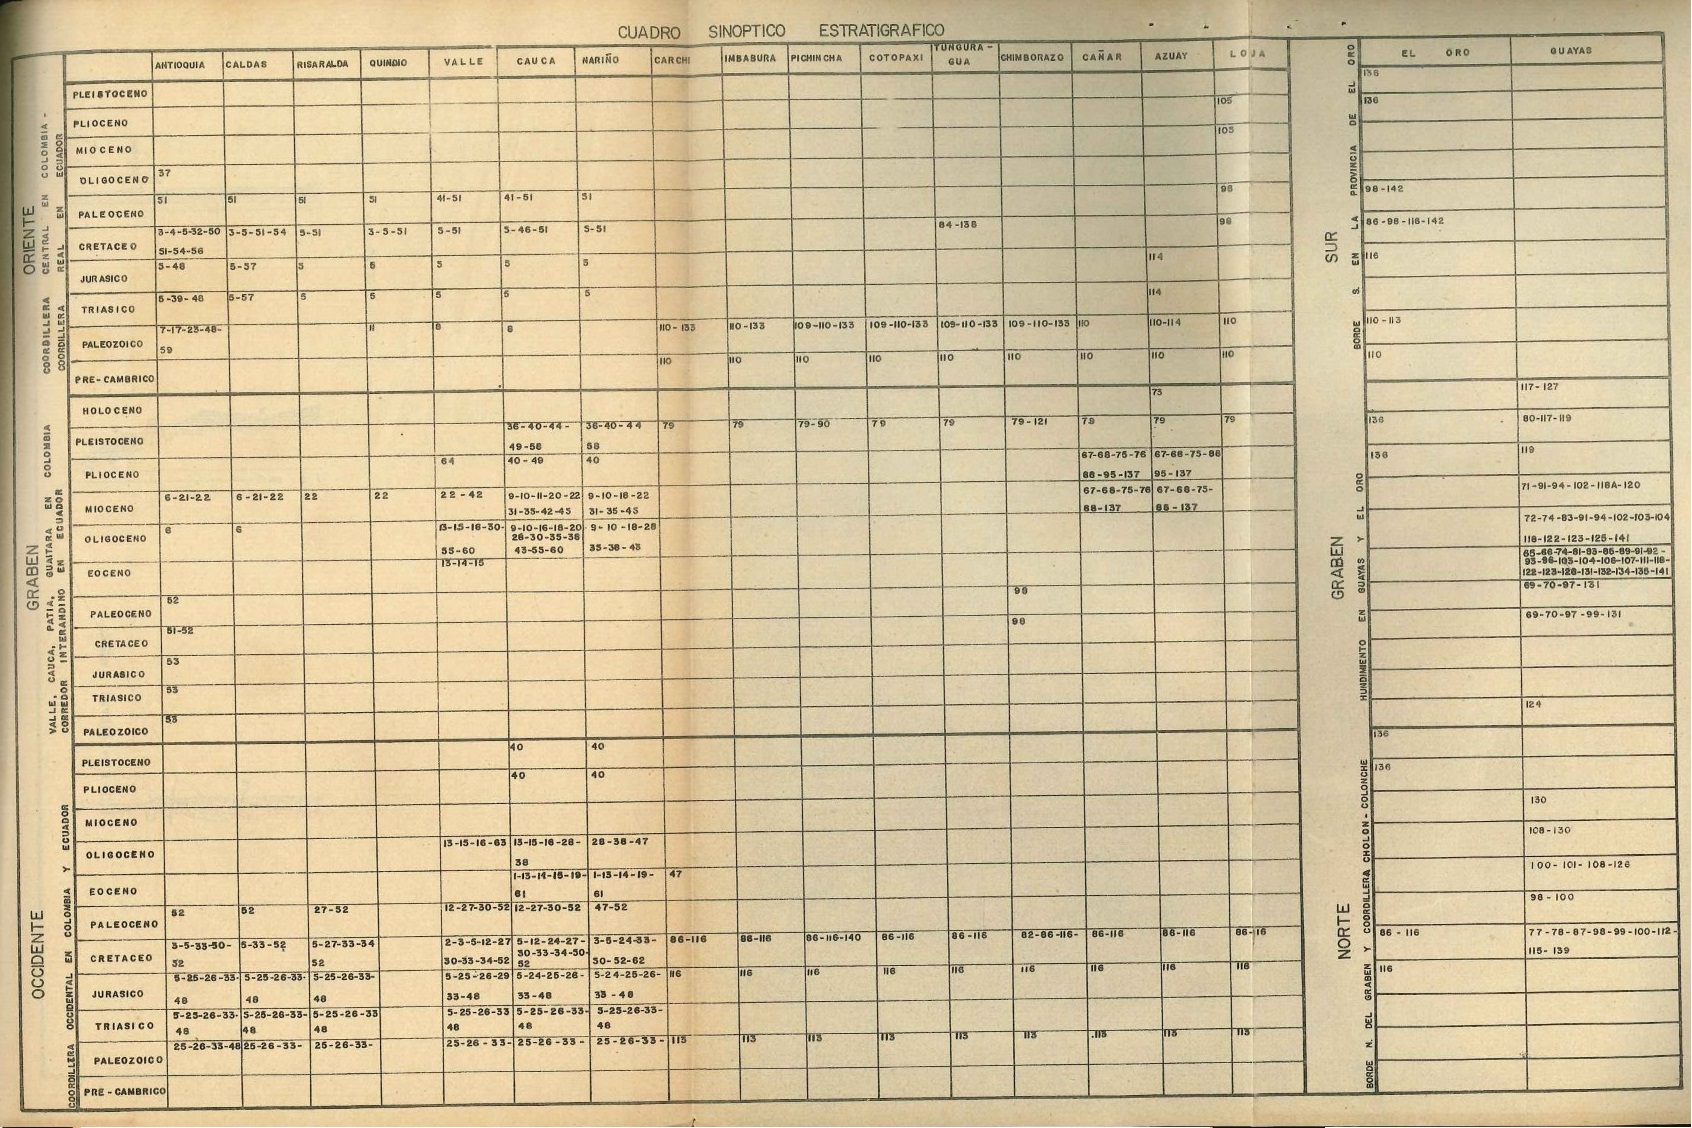 CUADRO SINOPTICO ESTRATIGRAFICO
ANTIOQUIA CALDAS RISARALDA QUINDIO VALLE CAUCA NARIÑO CARCHI IMBABURA PICHINCHA COTOPAXI TUNGURA-GUA CHIMBORAZO CAÑAR AZUAY LOJA EL ORO GUAYAS
ORIENTE
COORDILLERA CENTRAL EN COLOMBIA -
COORDILLERA REAL EN ECUADOR
PLEISTOCENO
PLIOCENO 105
MIOCENO 105
OLIGOCENO 37 98
PALEOCENO 51 51 51 51 41-51 41-51 51 98
CRETACEO 3-4-5-32-50 3-5-51-54 5-51 3-5-51 5-51 5-46-51 5-51 84-138
51-54-56
JURASICO 5-48 5-57 5 5 5 5 114
TRIASICO 5-39-48 5-57 5 5 5 5 5 114
PALEOZOICO 7-17-23-48- 11 8 8 110-133 110-133 109-110-133 109-110-133 109-110-133 109-110-133 110 110-114 110
59
PRE-CAMBRICO 110 110 110 110 110 110 110 110 110
GRABEN
VALLE, CAUCA, PATIA, GUAITARA EN COLOMBIA
CORREDOR INTERANDINO EN ECUADOR
HOLOCENO 73
PLEISTOCENO 36-40-44- 36-40-44 79 79 79-90 79 79 79-121 79 79 79
49-58 58
PLIOCENO 64 40-49 40 67-68-75-76 67-68-75-86
88-95-137 95-137
MIOCENO 6-21-22 6-21-22 22 22 22-42 9-10-11-20-22 9-10-18-22 67-68-75-76 67-68-75-
31-35-42-45 31-35-45 88-137 88-137
OLIGOCENO 6 6 13-15-16-30- 9-10-16-18-20 9-10-18-28
28-30-35-38
55-60 43-55-60 35-38-43
EOCENO 13-14-15
PALEOCENO 52 98
CRETACEO 51-52 98
JURASICO 53
TRIASICO 53
PALEOZOICO 53
OCCIDENTE
COORDILLERA OCCIDENTAL EN COLOMBIA Y ECUADOR
PLEISTOCENO 40 40
PLIOCENO 40 40
MIOCENO
OLIGOCENO 13-15-16-63 13-15-16-28- 28-38-47
38
EOCENO 1-13-14-15-19- 1-13-14-19- 47
61 61
PALEOCENO 52 52 27-52 12-27-30-52 12-27-30-52 47-52
CRETACEO 3-5-33-50- 5-33-52 5-27-33-34 2-3-5-12-27 5-12-24-27- 3-5-24-33- 86-116 86-116 86-116-140 86-116 86-116 82-86-116- 86-116 86-116 86-116
52 52 30-33-34-52 30-33-34-50- 50-52-62
52
JURASICO 5-25-26-33- 5-25-26-33- 5-25-26-33- 5-25-26-29 5-24-25-26- 5-24-25-26- 116 116 116 116 116 116 116 116 116
48 48 48 33-48 33-48 33-48
TRIASICO 5-25-26-33- 5-25-26-33- 5-25-26-33 5-25-26-33 5-25-26-33- 5-25-26-33-
48 48 48 48 48 48
PALEOZOICO 25-26-33-48 25-26-33- 25-26-33- 25-26-33- 25-26-33- 25-26-33- 113 113 113 113 113 113 113 113 113
PRE-CAMBRICO
SUR
BORDE S. EN LA PROVINCIA DE EL ORO
136
136
98-142
86-98-116-142
116
110-113
110
GRABEN
HUNDIMIENTO EN GUAYAS Y EL ORO
117-127
136 80-117-119
136 119
71-91-94-102-118A-120
72-74-83-91-94-102-103-104
118-122-123-125-141
65-66-74-81-83-85-89-91-92-
93-96-103-104-106-107-111-118-
122-123-128-131-132-134-135-141
69-70-97-131
69-70-97-99-131
124
NORTE
BORDE N. DEL GRABEN Y CORDILLERA CHOLON-COLONCHE
136
136
130
108-130
100-101-108-126
98-100
86-116 77-78-87-98-99-100-112-
115-139
116